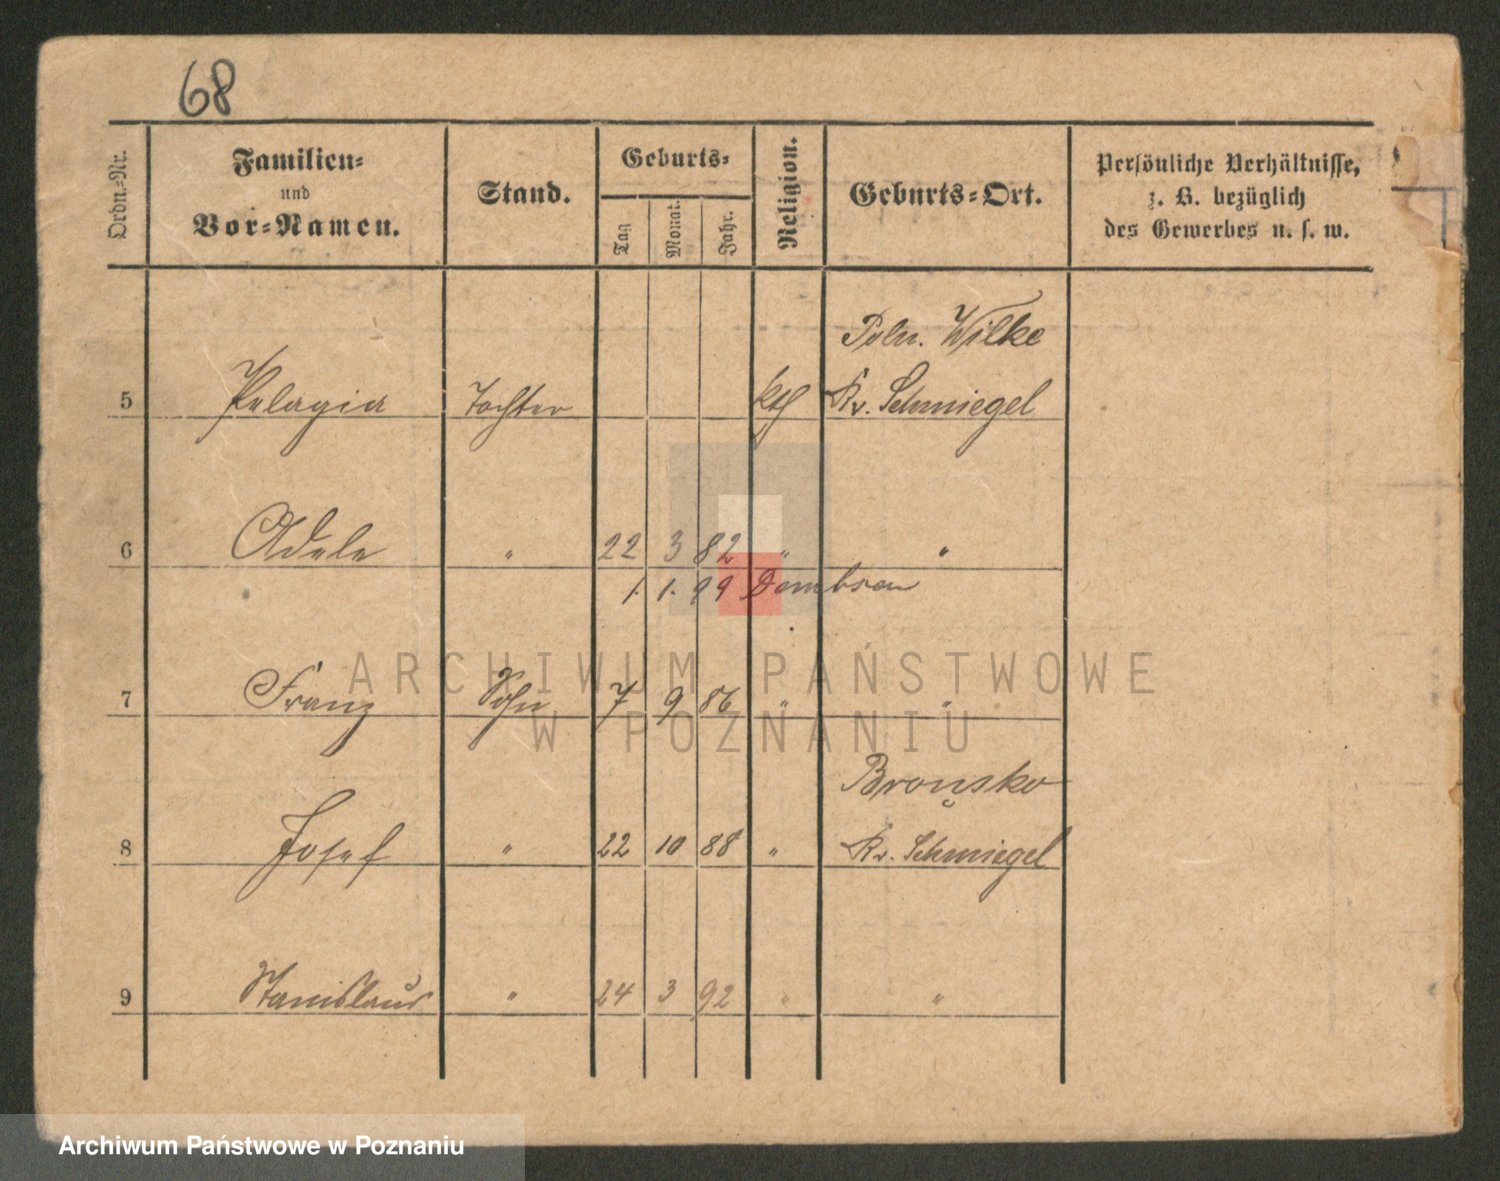 68
Ordn.-Nr.
Familien-
und
Vor-Namen.
Stand.
Geburts-
Tag
Monat.
Jahr.
Religion.
Geburts-Ort.
Persönliche Verhältnisse,
z. B. bezüglich
des Gewerbes u. s. w.
Poln. Wilke
5 Pelagia Tochter kth Kr. Schmiegel
6 Adele " 22 3 82 " "
1. 1. 99 Dombsen
7 Franz Sohn 7 9 86 " "
Bronsko
8 Josef " 22 10 88 " Kr. Schmiegel
9 Stanislaus " 24 3 92 " "
ARCHIWUM PAŃSTWOWE
W POZNANIU
Archiwum Państwowe w Poznaniu